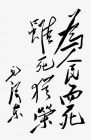 為人民而死
雖死猶榮
毛澤東